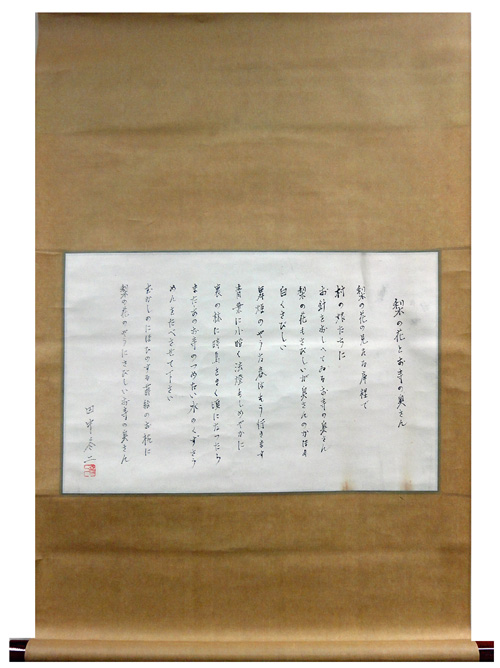 梨の花とお寺の奥さん
梨の花の見える庫裡で
村の娘たちに
お針を教へてゐるお寺の奥さん
梨の花もさびしいが奥さんのかほも
白くさびしい
のやうな春はもう行きます
青葉に小暗く法燈もしめやかに
裏の林に時鳥をきく頃になつたら
またあのお寺のつめたい水のくずきり
めんをたべさせて下さい
むかしめにはたのする前髪のお稚に
梨の花のやうにさびしいお寺の奥さん
田中冬二